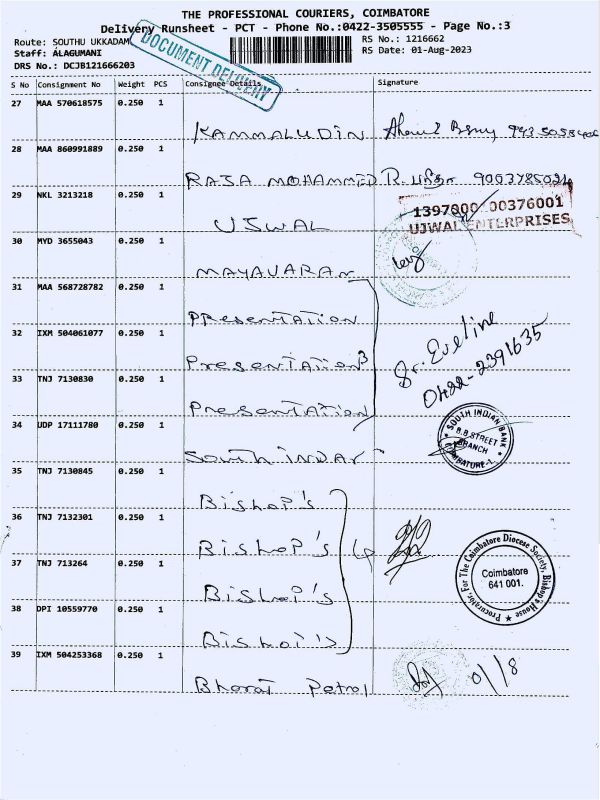 THE PROFESSIONAL COURIERS, COIMBATORE
Delivery Runsheet - PCT - Phone No.:0422-3505555 - Page No.:3
Route: SOUTHU UKKADAM
RS No.: 1216662
Staff: ALAGUMANI
RS Date: 01-Aug-2023
DRS No.: DCJB121666203
DOCUMENT DELIVERY
S No Consignment No Weight PCS Consignee Details Signature
27 MAA 570618575 0.250 1
KAMMALUDIN
28 MAA 860991889 0.250 1
RAJA MOHAMMED R. 9003785024
29 NKL 3213218 0.250 1
UJWAL
1397000 00376001
UJWAL ENTERPRISES
30 MYD 3655043 0.250 1
MAYAVARAM
31 MAA 568728782 0.250 1
Presentation
32 IXM 504061077 0.250 1
Presentation 3
Sr. Eveline
0422-2391635
33 TNJ 7130830 0.250 1
Presentation
34 UDP 17111780 0.250 1
SOUTH INDIAN BANK
B.B.STREET
BRANCH
COIMBATORE-1.
South
35 TNJ 7130845 0.250 1
Bishop's
36 TNJ 7132301 0.250 1
Bishop's
37 TNJ 713264 0.250 1
Procurator, For The Coimbatore Diocese Society, Bishop's House
Coimbatore
641 001.
Bishop's
38 DPI 10559770 0.250 1
Bishop's
39 IXM 504253368 0.250 1
Bharat Petrol
01/8